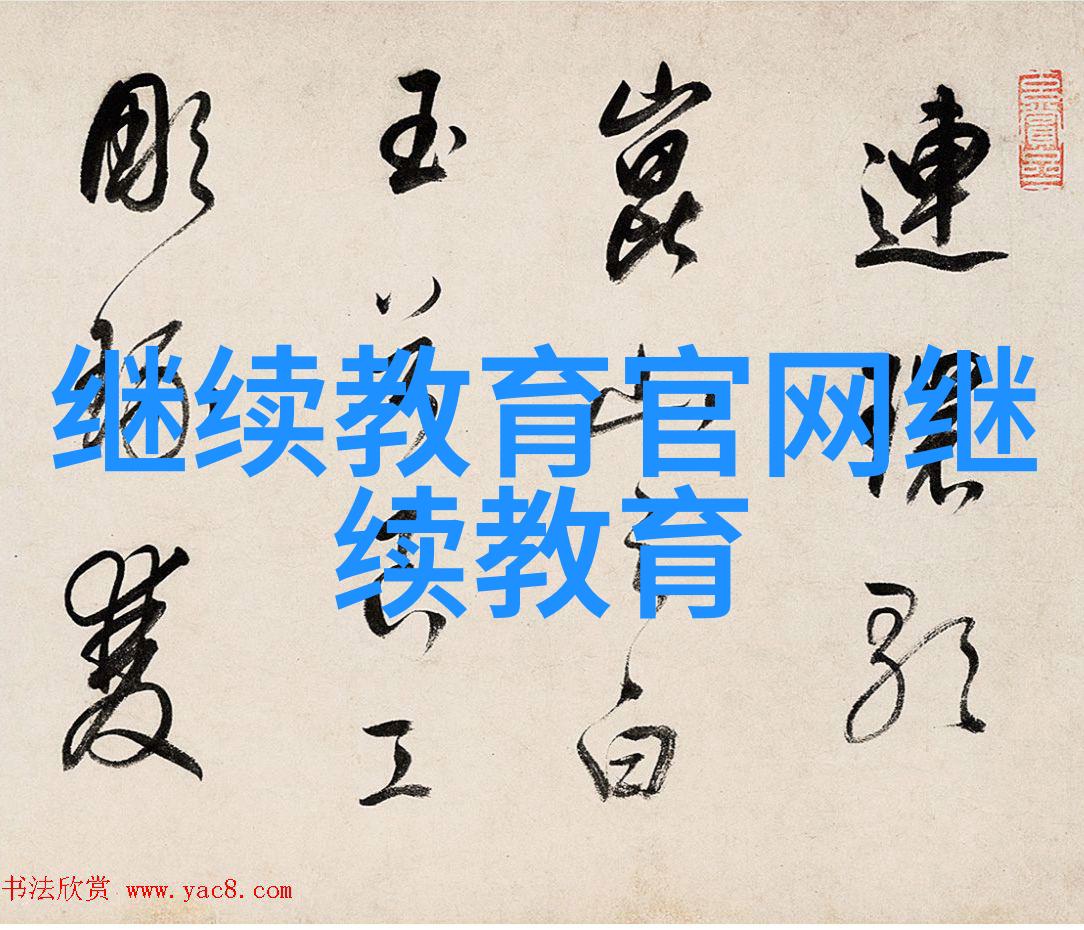 继续教育官网继
续教育
連環歌
崑山白
玉工
彫
书法欣赏 www.yac8.com